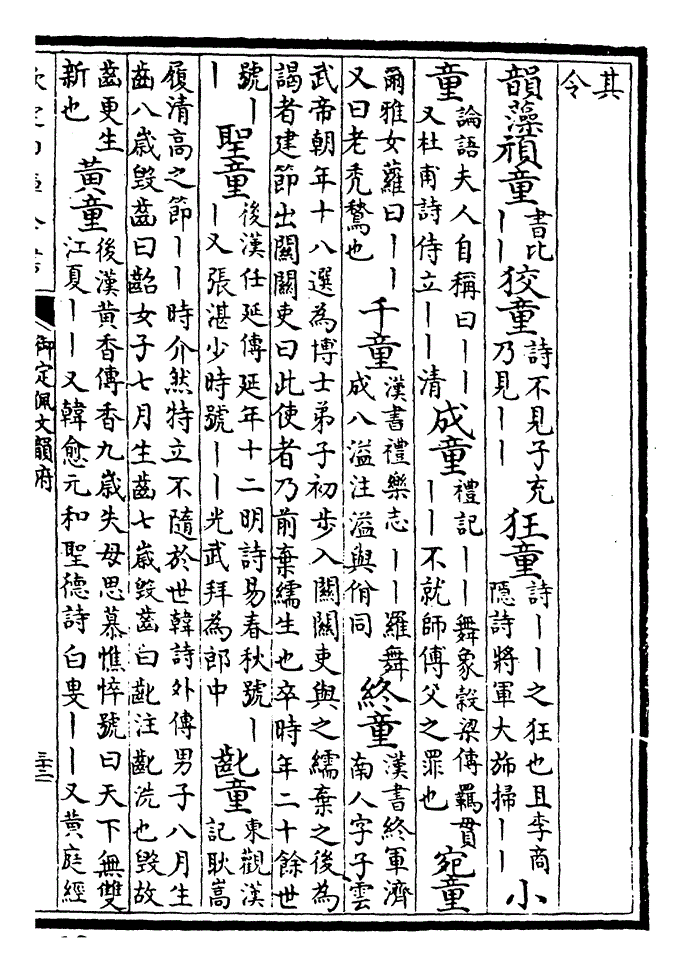 其令
韻藻頑童書比丨丨狡童詩不見子充乃見丨丨狂童詩丨丨之狂也且李商隱詩將軍大斾掃丨丨小
童論語夫人自稱曰丨丨又杜甫詩侍立丨丨清成童禮記丨丨舞象穀梁傳羈貫丨丨不就師傅父之罪也宛童
爾雅女蘿曰丨丨又曰老禿鶖也千童漢書禮樂志丨丨羅舞成八溢注溢與佾同終童漢書終軍濟南人字子雲
武帝朝年十八選為博士弟子初步入關關吏與之繻棄之後為謁者建節出關關吏曰此使者乃前棄繻生也卒時年二十餘世
號丨丨聖童後漢任延傳延年十二明詩易春秋號丨丨又張湛少時號丨丨光武拜為郎中齔童東觀漢記耿嵩
履清高之節丨丨時介然特立不隨於世韓詩外傳男子八月生齒八歲毀齒曰齠女子七月生齒七歲毀齒曰齔注齔洗也毀故
齒更生新也黃童後漢黃香傳香九歲失母思慕憔悴號曰天下無雙江夏丨丨又韓愈元和聖德詩白叟丨丨又黃庭經
欽定四庫全書 御定佩文韻府